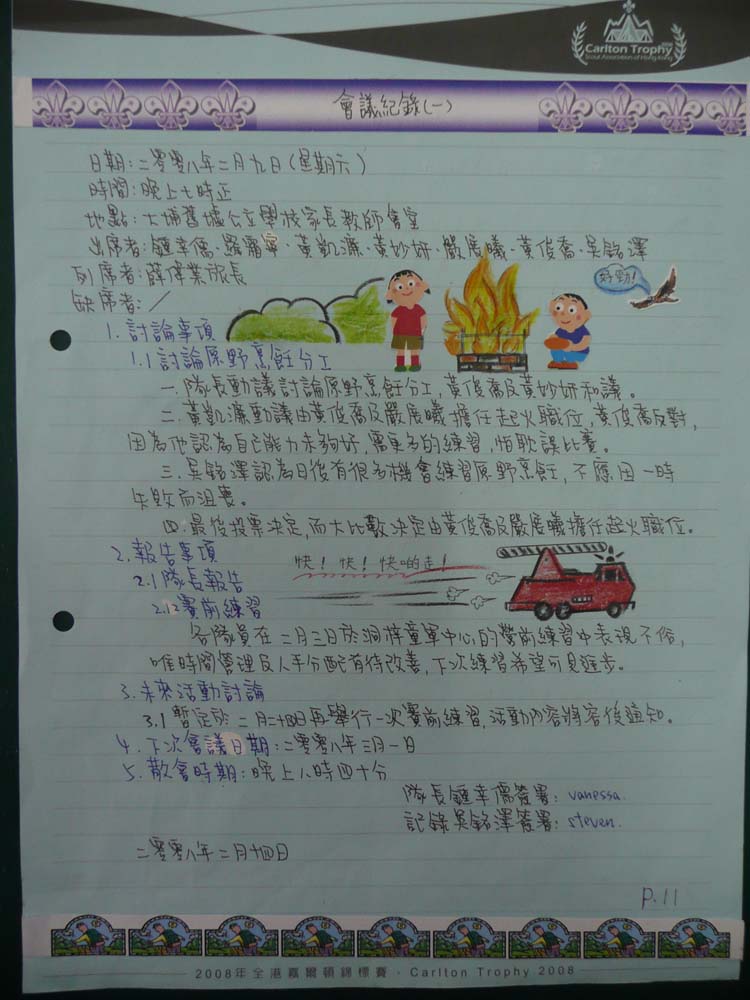 Carlton Trophy
Scout Association of Hong Kong
會議紀錄(一)
日期:二零零八年二月九日(星期六)
時間:晚上七時正
地點:大埔舊墟公立學校家長教師會室
出席者:鍾幸儒、羅霈寧、黃凱濂、黃妙妍、嚴展曦、黃俊喬、吳銘澤
列席者:薛偉業旅長
缺席者:/
好勁!
1. 討論事項
1.1 討論原野烹飪分工
一. 隊長動議討論原野烹飪分工,黃俊喬及黃妙妍和議。
二. 黃凱濂動議由黃俊喬及嚴展曦擔任起火職位,黃俊喬反對,
因為他認為自己能力未夠好,需更多的練習,怕耽誤比賽。
三. 吳銘澤認為日後有很多機會練習原野烹飪,不應因一時
失敗而沮喪。
四. 最後投票決定,而大比數決定由黃俊喬及嚴展曦擔任起火職位。
2. 報告事項
快!快!快啲走!
2.1 隊長報告
2.12 賽前練習
各隊員在二月三日於洞梓童軍中心的營前練習中表現不俗,
唯時間管理及人手分配有待改善,下次練習希望可見進步。
3. 未來活動討論
3.1 暫定於二月二十四日再舉行一次賽前練習,活動內容將容後通知。
4. 下次會議日期:二零零八年三月一日
5. 散會時期:晚上八時四十分
隊長鍾幸儒簽署:vanessa.
記錄吳銘澤簽署:steven.
二零零八年二月十四日
P.11
2008年全港嘉爾頓錦標賽 · Carlton Trophy 2008